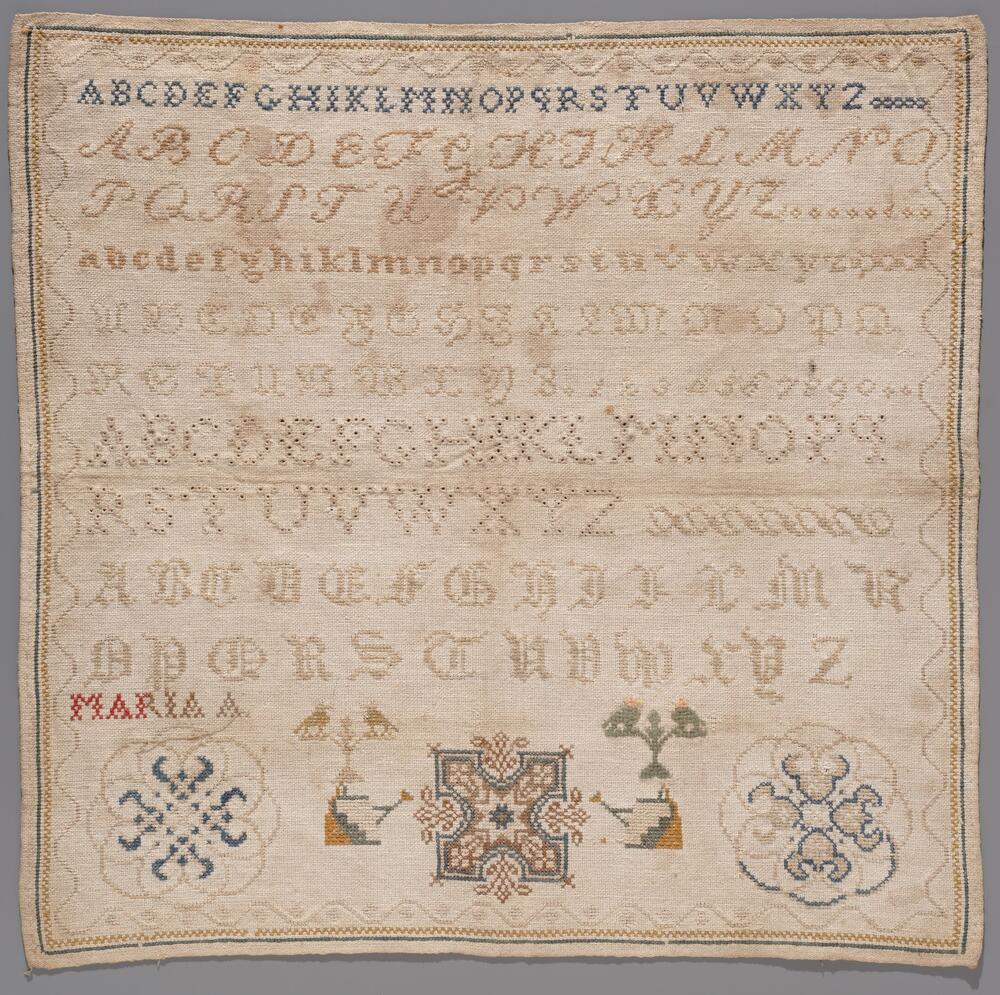 ABCDEFGHIKLMNOPQRSTUVWXYZ
ABCDEFGHIKLMNO
PQRSTUVWXYZ
abcdefghiklmnopqrstuvwxyz
ABCDEFGHIKLMNOPQ
RSTUVWXYZ.1234567890
ABCDEFGHIKLMNOPQ
RSTUVWXYZ
ABCDEFGHIKLMN
OPQRSTUVWXYZ
MARIA A